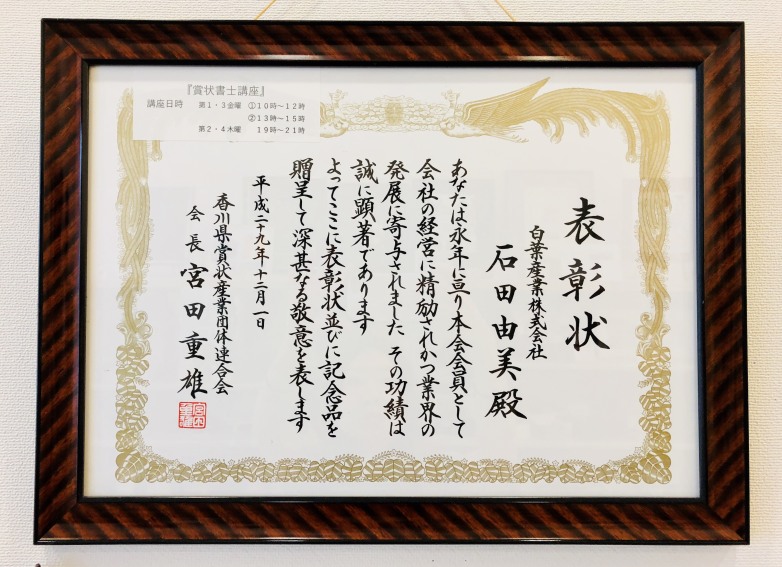 『賞状書士講座』
講座日時 第1・3金曜 ①10時～12時
②13時～15時
第2・4木曜 19時～21時
表彰状
白葉産業株式会社
石田由美殿
あなたは永年に亘り本会会員として
会社の経営に精励されかつ業界の
発展に寄与されました その功績は
誠に顕著であります
よってここに表彰状並びに記念品を
贈呈して深甚なる敬意を表します
平成二十九年十二月一日
香川県賞状産業団体連合会
会長 宮田重雄